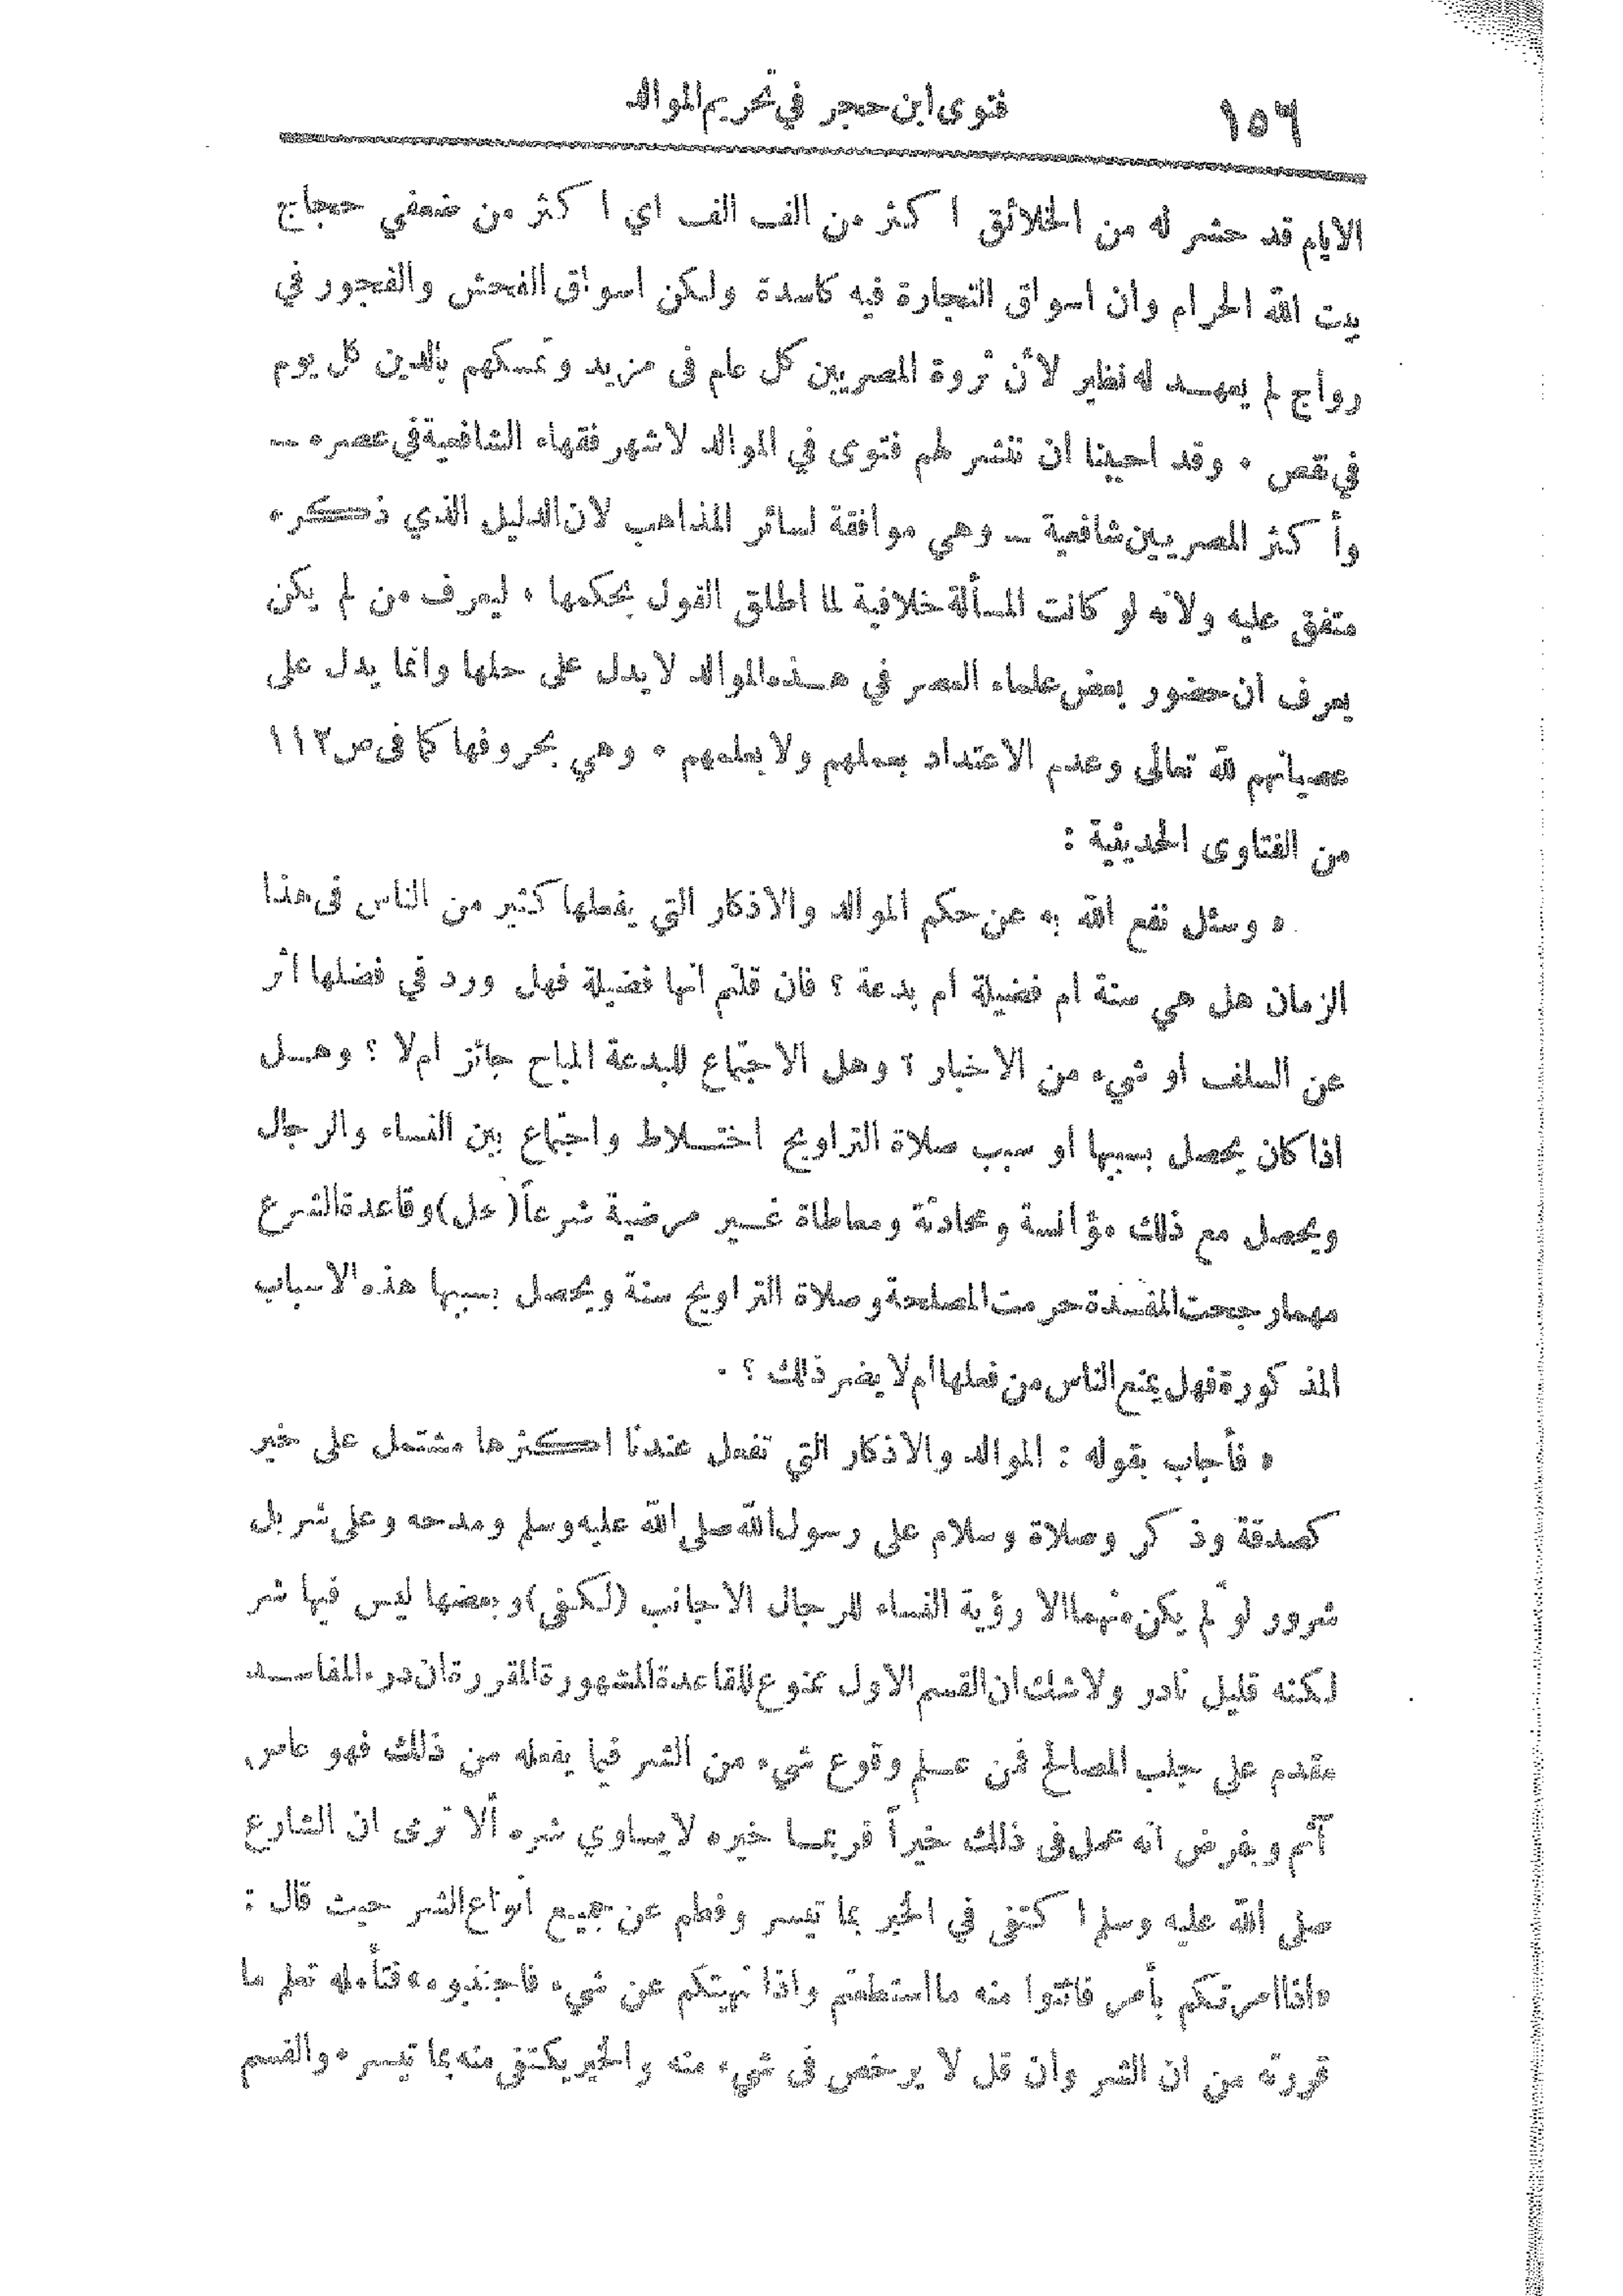 ١٥٦
فتوى ابن حجر في تحريم الموالد
الايام قد حشر له من الخلائق اكثر من الف الف اي اكثر من ضعفي حجاج
بيت الله الحرام وان اسواق التجارة فيه كاسدة ولكن اسواق الفحش والفجور في
رواج لم يعهد له نظير لأن ثروة المصريين كل عام فى مزيد وتمسكهم بالدين كل يوم
في نقص . وقد احببنا ان ننشر لهم فتوى في الموالد لاشهر فقهاء الشافعية في عصره —
وأكثر المصريين شافعية — وهي موافقة لسائر المذاهب لان الدليل الذي ذكره
متفق عليه ولانه لو كانت المسألة خلافية لما اطلق القول بحكمها . ليعرف من لم يكن
يعرف ان حضور بعض علماء العصر في هذه الموالد لا يدل على حلها وانما يدل على
عصيانهم لله تعالى وعدم الاعتداد بعملهم ولا بعلمهم . وهي بحروفها كما فى ص ١١٢
من الفتاوى الحديثية :
« وسئل نفع الله به عن حكم الموالد والاذكار التي يفعلها كثير من الناس فى هذا
الزمان هل هي سنة ام فضيلة ام بدعة ؟ فان قلتم انها فضيلة فهل ورد في فضلها اثر
عن السلف او شيء من الاخبار ؟ وهل الاجتماع للبدعة المباح جائز ام لا ؟ وهل
اذا كان يحصل بسببها او سبب صلاة التراويح اختلاط واجتماع بين النساء والرجال
ويحصل مع ذلك مؤانسة ومحادثة ومعاطاة غير مرضية شرعاً (حل) وقاعدة الشرع
مهما رجحت المفسدة حرمت المصلحة وصلاة التراويح سنة ويحصل بسببها هذه الاسباب
المذكورة فهل يمنع الناس من فعلها ام لا يضر ذلك ؟ .
« فأجاب بقوله : الموالد والاذكار التي تفعل عندنا اكثرها مشتمل على خير
كصدقة وذكر وصلاة وسلام على رسول الله صلى الله عليه وسلم ومدحه وعلى شر بل
شرور لو لم يكن منها الا رؤية النساء للرجال الاجانب (لكفى) وبعضها ليس فيها شر
لكنه قليل نادر ولا شك ان القسم الاول ممنوع للقاعدة المشهورة المقررة ان درء المفاسد
مقدم على جلب المصالح فمن علم وقوع شيء من الشر فيما يفعله من ذلك فهو عاص
آثم وبفرض انه عمل فى ذلك خيراً فربما خيره لا يساوي شره ألا ترى ان الشارع
صلى الله عليه وسلم اكتفى في الخير بما تيسر وفطم عن جميع أنواع الشر حيث قال :
«اذا امرتكم بأمر فائتوا منه ما استطعتم واذا نهيتكم عن شيء فاجتنبوه» فتأمله تعلم ما
قررته من ان الشر وان قل لا يرخص فى شيء منه والخير يكتفى منه بما تيسر . والقسم